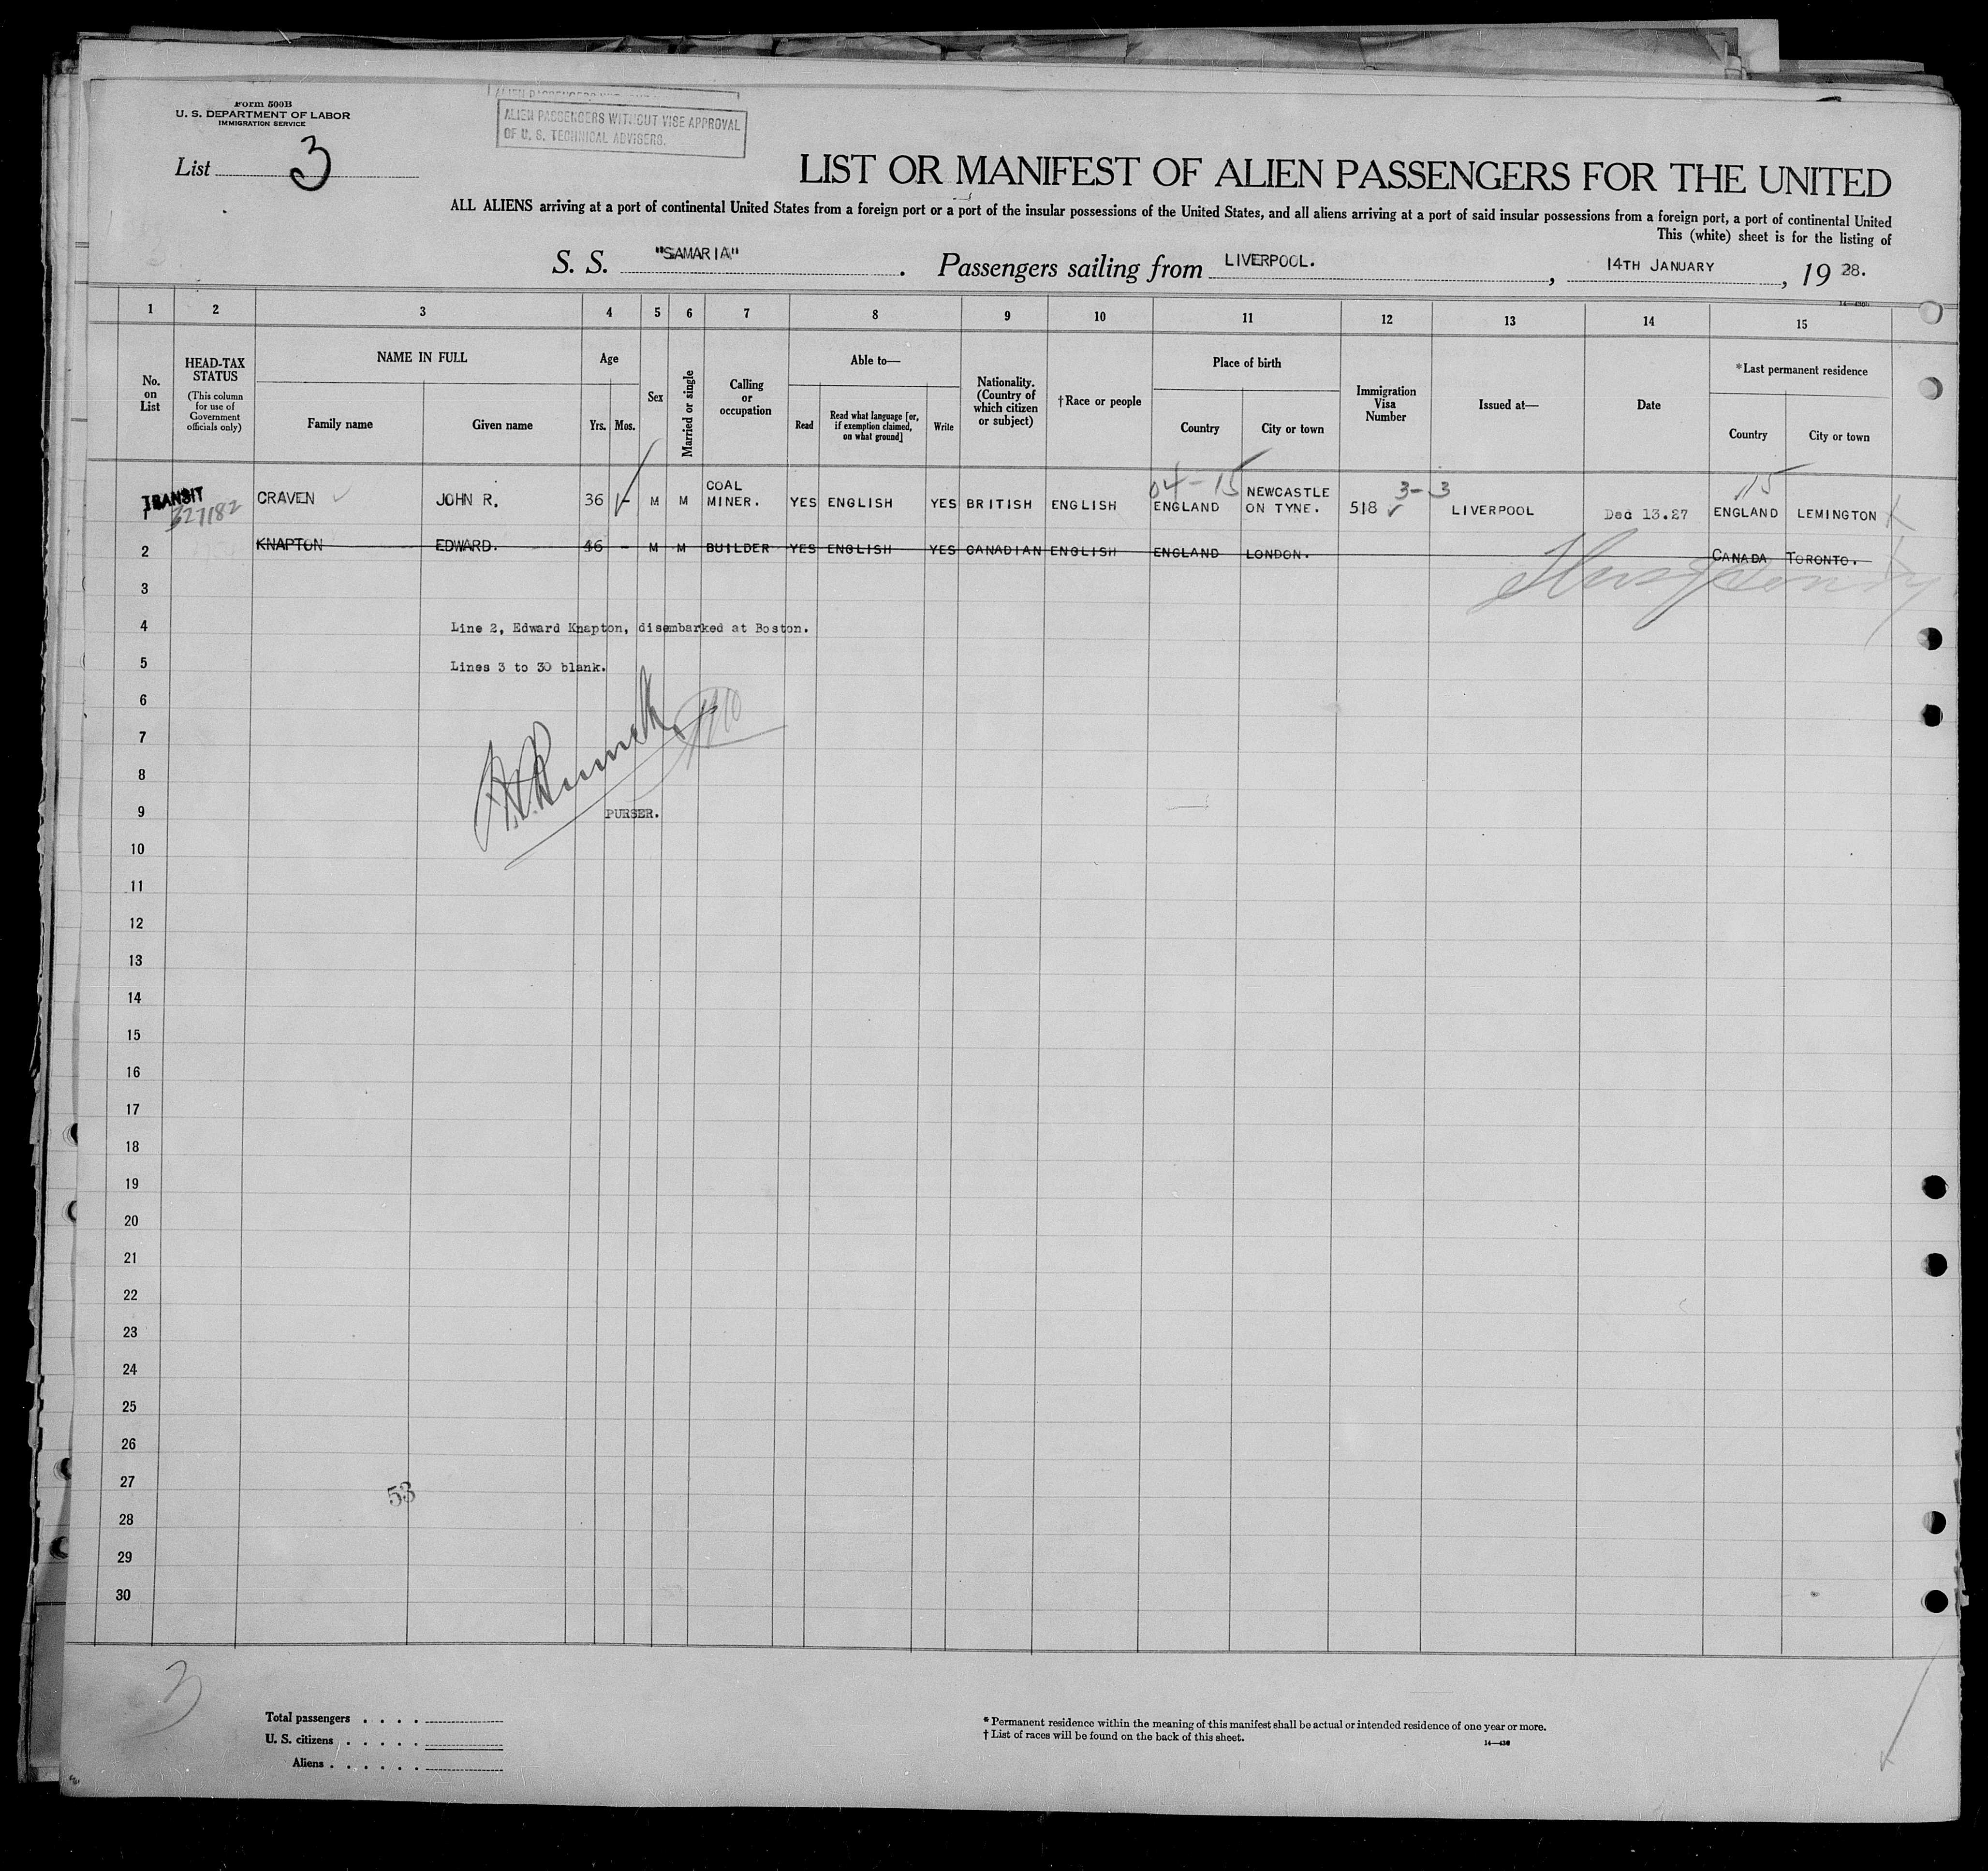 Form 500B
U. S. DEPARTMENT OF LABOR
IMMIGRATION SERVICE
ALIEN PASSENGERS WITHOUT VISE APPROVAL
OF U. S. TECHNICAL ADVISERS.
List 3
LIST OR MANIFEST OF ALIEN PASSENGERS FOR THE UNITED
ALL ALIENS arriving at a port of continental United States from a foreign port or a port of the insular possessions of the United States, and all aliens arriving at a port of said insular possessions from a foreign port, a port of continental United
This (white) sheet is for the listing of
S. S. "SAMARIA". Passengers sailing from LIVERPOOL., 14TH JANUARY, 19 28.
1 2 3 4 5 6 7 8 9 10 11 12 13 14 15
No. on List
HEAD-TAX STATUS
(This column for use of Government officials only)
NAME IN FULL
Family name
Given name
Age
Yrs. Mos.
Sex
Married or single
Calling or occupation
Able to—
Read
Read what language [or, if exemption claimed, on what ground]
Write
Nationality. (Country of which citizen or subject)
†Race or people
Place of birth
Country
City or town
Immigration Visa Number
Issued at—
Date
*Last permanent residence
Country
City or town
04-15 3-3 15
1 TRANSIT 327182 CRAVEN JOHN R. 36 - M M COAL MINER. YES ENGLISH YES BRITISH ENGLISH ENGLAND NEWCASTLE ON TYNE. 518 LIVERPOOL Dec 13.27 ENGLAND LEMINGTON
2 KNAPTON EDWARD. 46 - M M BUILDER YES ENGLISH YES CANADIAN ENGLISH ENGLAND LONDON. CANADA TORONTO.
3
4 Line 2, Edward Knapton, disembarked at Boston.
5 Lines 3 to 30 blank.
6
7
8
9 PURSER.
10
11
12
13
14
15
16
17
18
19
20
21
22
23
24
25
26
27
53
28
29
30
3
Total passengers . . . .
U. S. citizens . . . . .
Aliens . . . . . .
* Permanent residence within the meaning of this manifest shall be actual or intended residence of one year or more.
† List of races will be found on the back of this sheet.
14—430